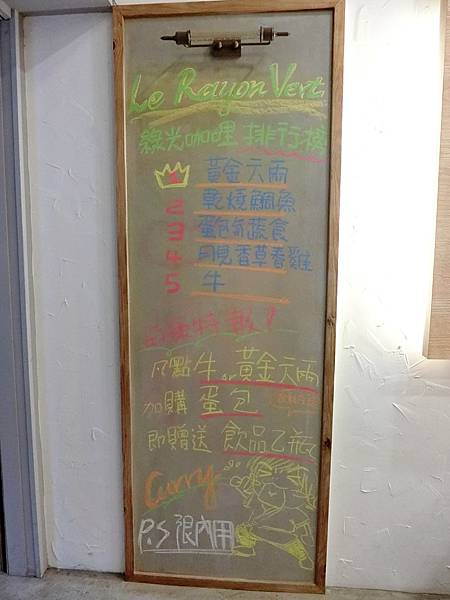 Le Rayon Vert
綠光咖哩 排行榜
1 黃金六兩
2 乾燒鯛魚
3 蛋包佐蔬食
4 月見香草香雞
5 牛
特報!
凡點 牛 or 黃金六兩
加購 蛋包
即贈送 飲品乙瓶
Curry
P.S 限內用